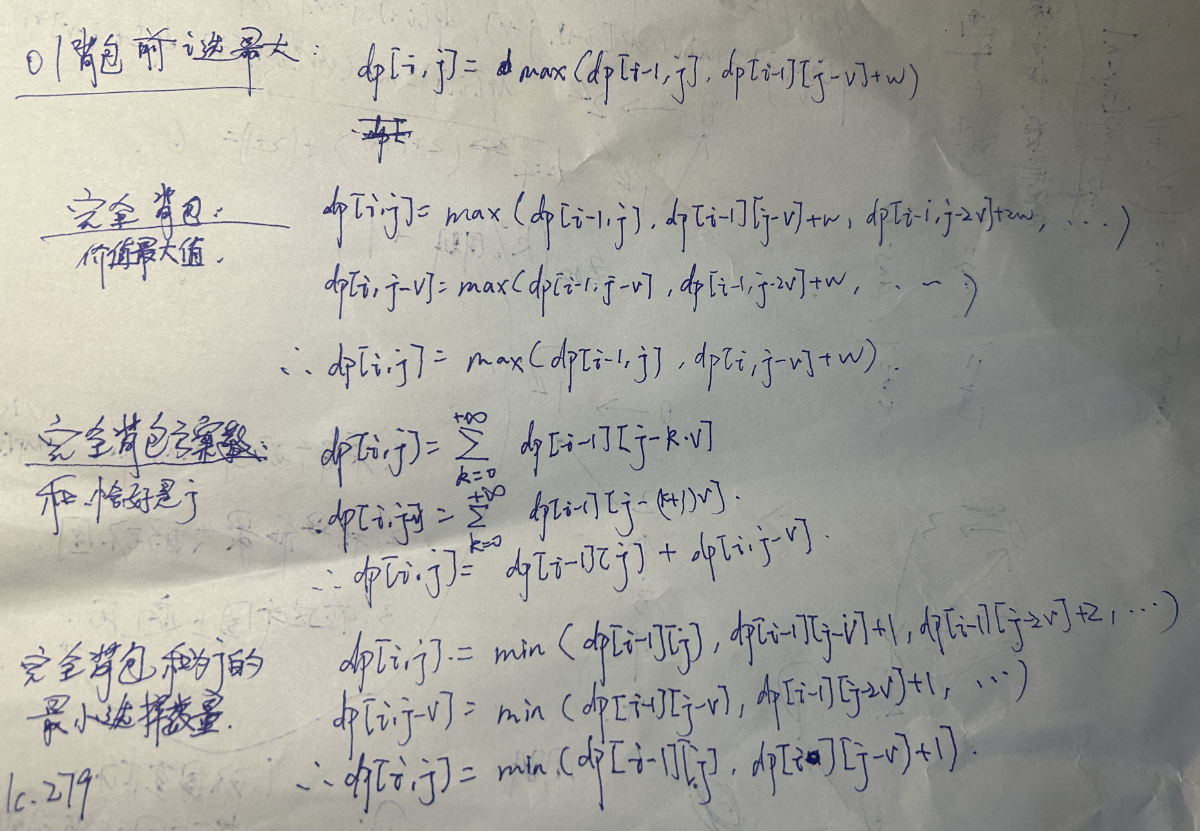 01背包 前i选最大: dp[i,j]= max(dp[i-1,j], dp[i-1][j-v]+w)
完全背包: dp[i,j]= max(dp[i-1,j], dp[i-1][j-v]+w, dp[i-1,j-2v]+2w, ...)
价值最大值. dp[i,j-v]=max(dp[i-1,j-v], dp[i-1,j-2v]+w, ...)
∴ dp[i,j]= max(dp[i-1,j], dp[i,j-v]+w).
完全背包方案数: dp[i,j)= ∑k=0+∞ dp[i-1][j-k·v]
和恰好是j dp[i,j-v] = ∑k=0+∞ dp[i-1][j-(k+1)v].
∴ dp[i,j]= dp[i-1][j] + dp[i,j-v].
完全背包 和为j的 dp[i,j] = min(dp[i-1][j], dp[i-1][j-v]+1, dp[i-1][j-2v]+2, ...)
最小选择数量. dp[i,j-v] = min(dp[i-1][j-v], dp[i-1][j-2v]+1, ...)
lc.279 ∴ dp[i,j] = min(dp[i-1][j], dp[i][j-v]+1).